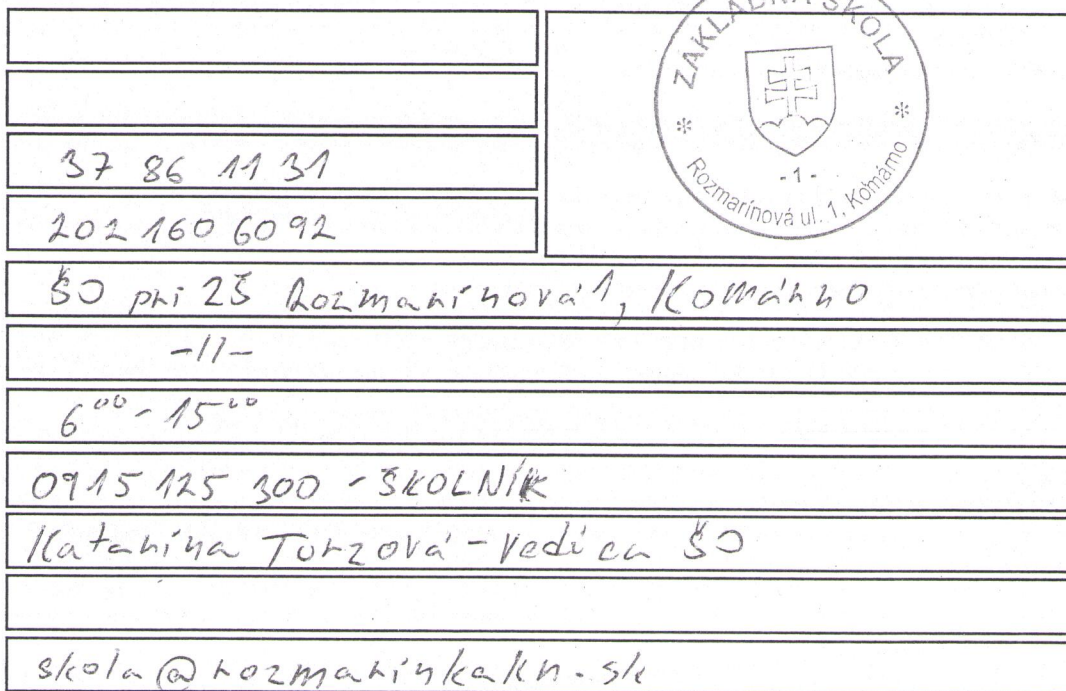 ZÁKLADNÁ ŠKOLA
* *
- 1 -
Rozmarínová ul. 1, Komárno
37 86 11 31
202 160 60 92
ŠJ pri ZŠ Rozmarínová 1, Komárno
-//-
6⁰⁰ - 15⁰⁰
0915 125 300 - ŠKOLNÍK
Katarína Turzová - Vedúca ŠJ
skola@rozmarinkakn.sk